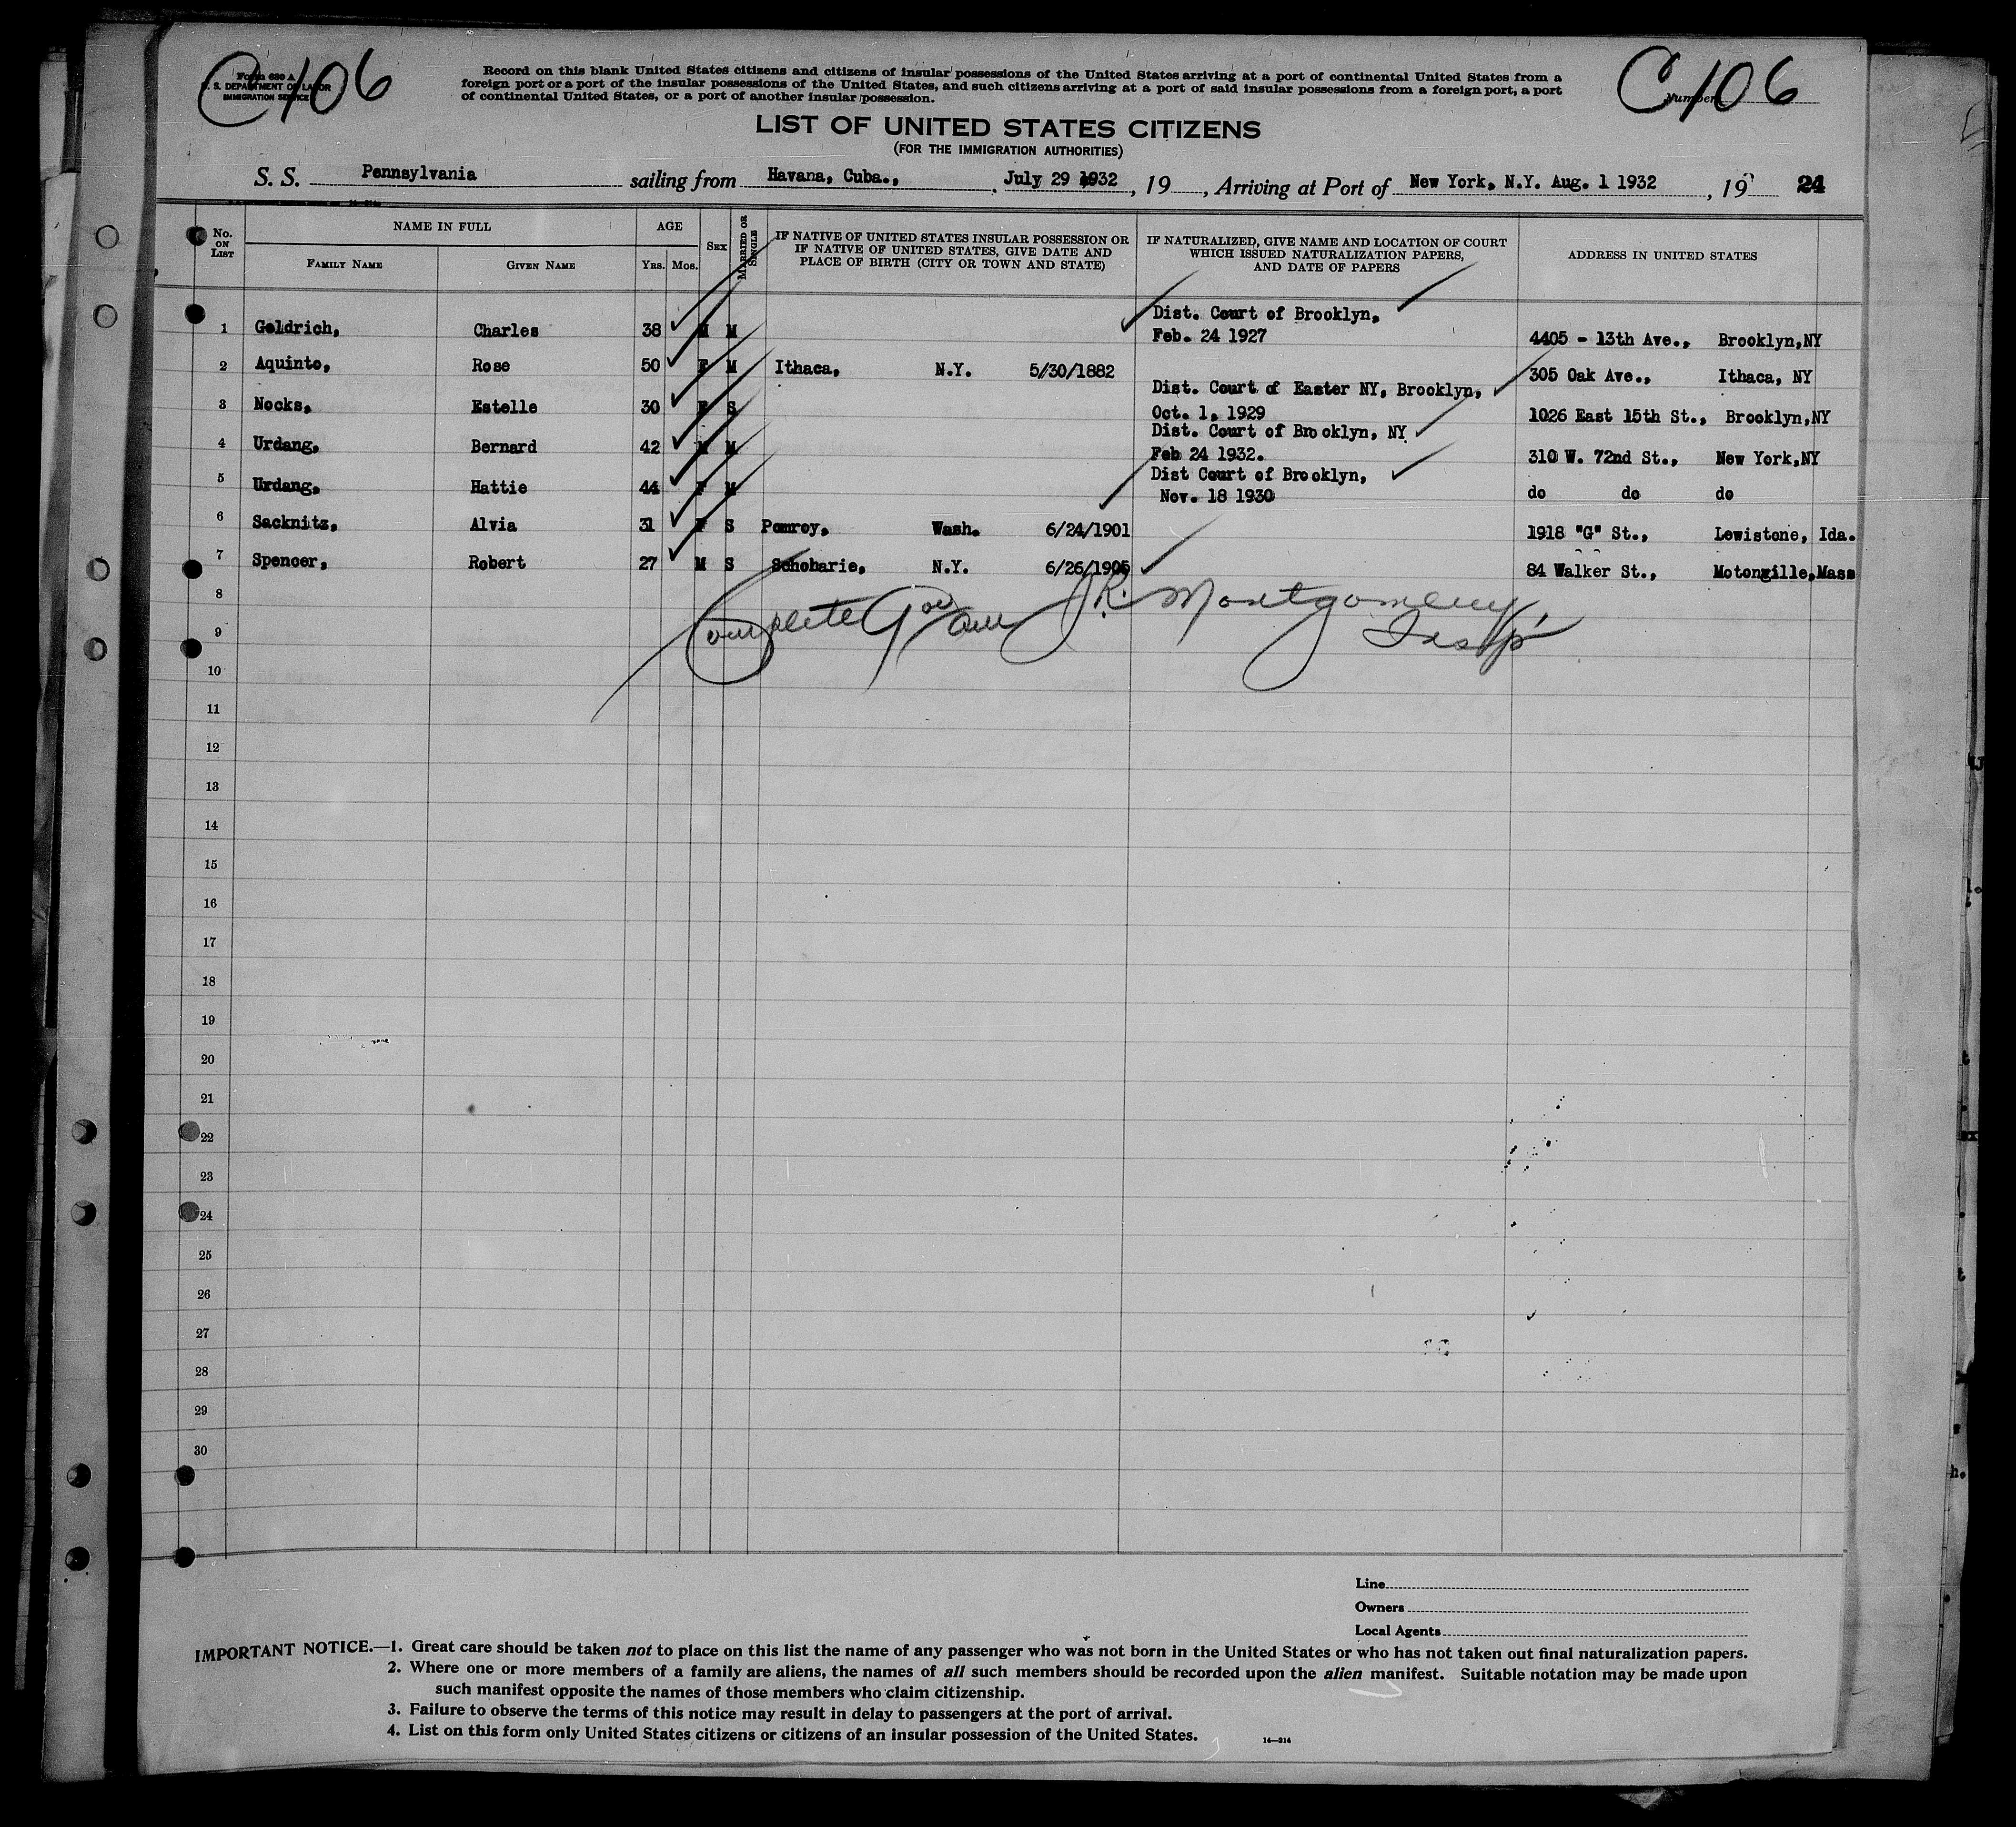 C 106
Form 630 A
U. S. DEPARTMENT OF LABOR
IMMIGRATION SERVICE
Record on this blank United States citizens and citizens of insular possessions of the United States arriving at a port of continental United States from a
foreign port or a port of the insular possessions of the United States, and such citizens arriving at a port of said insular possessions from a foreign port, a port
of continental United States, or a port of another insular possession.
C 106
Number
LIST OF UNITED STATES CITIZENS
(FOR THE IMMIGRATION AUTHORITIES)
S. S. Pennsylvania sailing from Havana, Cuba., July 29 1932, 19, Arriving at Port of New York, N.Y. Aug. 1 1932, 19 24
No. ON LIST
NAME IN FULL
FAMILY NAME
GIVEN NAME
AGE
Yrs. Mos.
SEX
MARRIED OR SINGLE
IF NATIVE OF UNITED STATES INSULAR POSSESSION OR
IF NATIVE OF UNITED STATES, GIVE DATE AND
PLACE OF BIRTH (CITY OR TOWN AND STATE)
IF NATURALIZED, GIVE NAME AND LOCATION OF COURT
WHICH ISSUED NATURALIZATION PAPERS,
AND DATE OF PAPERS
ADDRESS IN UNITED STATES
1 Goldrich, Charles 38 M M Dist. Court of Brooklyn,
Feb. 24 1927 4405 - 13th Ave., Brooklyn,NY
2 Aquinto, Rose 50 F M Ithaca, N.Y. 5/30/1882 305 Oak Ave., Ithaca, NY
3 Nocks, Estelle 30 F S Dist. Court of Easter NY, Brooklyn,
Oct. 1, 1929 1026 East 15th St., Brooklyn,NY
4 Urdang, Bernard 42 M M Dist. Court of Brooklyn, NY
Feb 24 1932. 310 W. 72nd St., New York,NY
5 Urdang, Hattie 44 F M Dist Court of Brooklyn,
Nov. 18 1930 do do do
6 Sacknitz, Alvia 31 F S Pomroy, Wash. 6/24/1901 1918 "G" St., Lewistone, Ida.
7 Spencer, Robert 27 M S Schoharie, N.Y. 6/26/1905 84 Walker St., Motongille,Mass
8
Complete J.R. Montgomery
9
Insp
10
11
12
13
14
15
16
17
18
19
20
21
22
23
24
25
26
27
28
29
30
Line
Owners
Local Agents
IMPORTANT NOTICE.—1. Great care should be taken not to place on this list the name of any passenger who was not born in the United States or who has not taken out final naturalization papers.
2. Where one or more members of a family are aliens, the names of all such members should be recorded upon the alien manifest. Suitable notation may be made upon
such manifest opposite the names of those members who claim citizenship.
3. Failure to observe the terms of this notice may result in delay to passengers at the port of arrival.
4. List on this form only United States citizens or citizens of an insular possession of the United States.
14—314